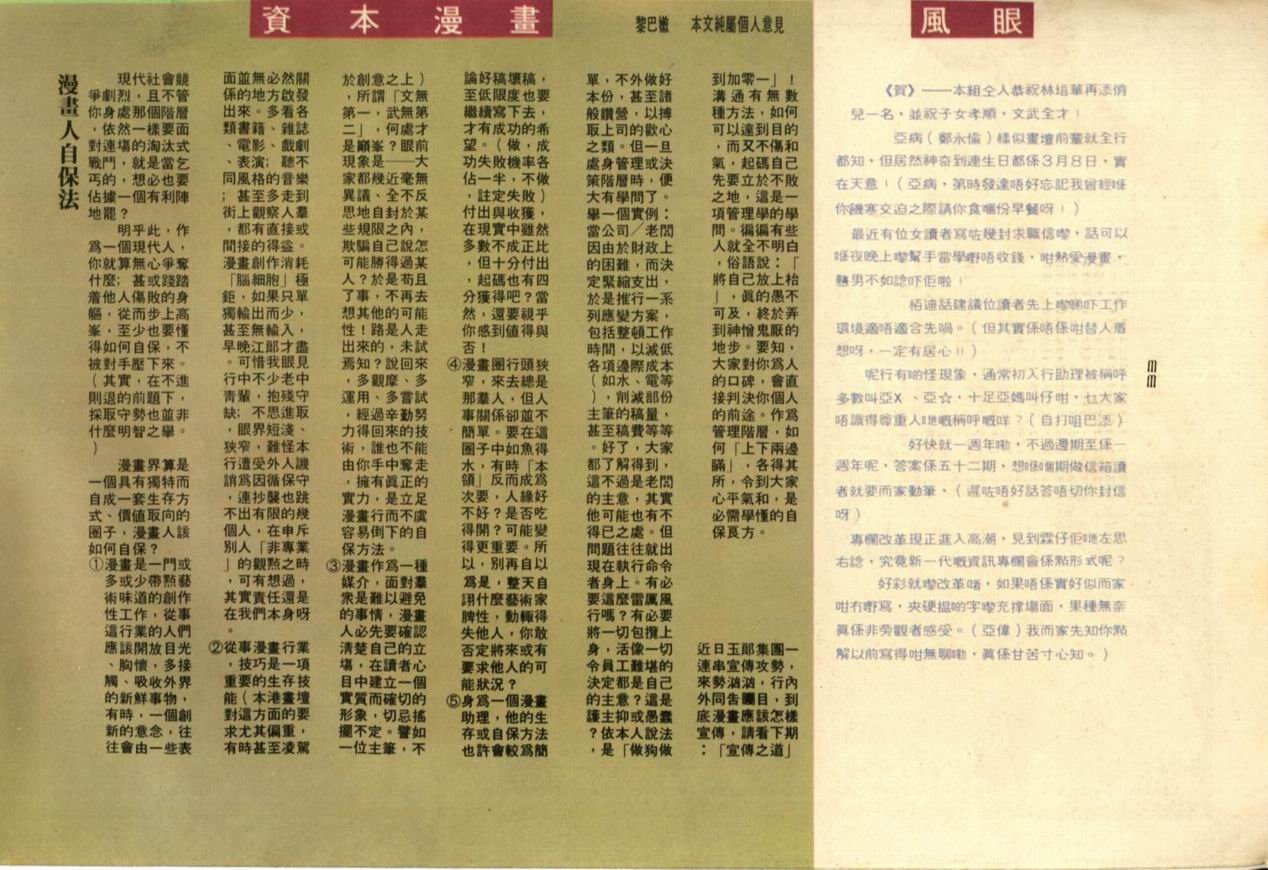 資本漫畫
黎巴嫩 本文純屬個人意見
漫畫人自保法
現代社會競
爭劇烈，且不管
你身處那個階層
，依然一樣要面
對連塲的淘汰式
戰鬥，就是當乞
丐的，想必也要
佔據一個有利陣
地罷？
明乎此，作
爲一個現代人，
你就算無心爭奪
什麼；甚或踐踏
着他人傷敗的身
軀，從而步上高
峯，至少也要懂
得如何自保，不
被對手壓下來。
（其實，在不進
則退的前題下，
採取守勢也並非
什麼明智之舉。
）
漫畫界算是
一個具有獨特而
自成一套生存方
式、價值取向的
圈子，漫畫人該
如何自保？
①漫畫是一門或
多或少帶點藝
術味道的創作
性工作，從事
這行業的人們
應該開放目光
、胸懷，多接
觸、吸收外界
的新鮮事物，
有時，一個創
新的意念，往
往會由一些表
面並無必然關
係的地方啟發
出來。多看各
類書籍、雜誌
、電影、戲劇
、表演；聽不
同風格的音樂
；甚至多走到
街上觀察人羣
，都有直接或
間接的得益。
漫畫創作消耗
「腦細胞」極
鉅，如果只單
獨輸出而少，
甚至無輸入，
早晚江郎才盡
。可惜我眼見
行中不少老中
青輩，抱殘守
缺；不思進取
，眼界短淺、
狹窄，難怪本
行遭受外人譏
誚爲因循保守
，連抄襲也跳
不出有限的幾
個人，在申斥
別人「非專業
」的觀點之時
，可有想過，
其實責任還是
在我們本身呀
。
②從事漫畫行業
，技巧是一項
重要的生存技
能（本港畫壇
對這方面的要
求尤其偏重，
有時甚至凌駕
於創意之上）
，所謂「文無
第一，武無第
二」，何處才
是巔峯？眼前
現象是──大
家都幾近毫無
異議、全不反
思地自封於某
些規限之內，
欺騙自己說怎
可能勝得過某
人？於是苟且
了事，不再去
想其他的可能
性！路是人走
出來的，未試
焉知？說回來
，多觀摩、多
運用、多嘗試
，經過辛勤努
力得回來的技
術，誰也不能
由你手中奪走
，擁有真正的
實力，是立足
漫畫行而不虞
容易倒下的自
保方法。
③漫畫作爲一種
媒介，面對羣
衆是難以避免
的事情，漫畫
人必先要確認
清楚自己的立
塲，在讀者心
目中建立一個
實質而確切的
形象，切忌搖
擺不定。譬如
一位主筆，不
論好稿壞稿，
至低限度也要
繼續寫下去，
才有成功的希
望。（做，成
功失敗機率各
佔一半，不做
，註定失敗）
付出與收獲，
在現實中雖然
多數不成正比
，但十分付出
，起碼也有四
分獲得吧？當
然，還要視乎
你感到値得與
否！
④漫畫圈行頭狹
窄，來去總是
那羣人，但人
事關係卻並不
簡單。要在這
圈子中如魚得
水，有時「本
領」反而成爲
次要，人緣好
不好？是否吃
得開？可能變
得更重要。所
以，別再自以
爲是，整天自
詡什麼藝術家
脾性，動輒得
失他人，你敢
否定將來或有
要求他人的可
能狀況？
⑤身爲一個漫畫
助理，他的生
存或自保方法
也許會較爲簡
單，不外做好
本份，甚至諸
般鑽營，以搏
取上司的歡心
之類。但一旦
處身管理或決
策階層時，便
有大學問了。
舉一個實例：
當公司／老闆
因由於財政上
的困難，而決
定緊縮支出，
於是推行一系
列應變方案，
包括整頓工作
時間，以減低
各項邊際成本
（如水、電等
），削減部份
主筆的稿量，
甚至稿費等等
。好了，大家
都了解得到，
這不過是老闆
的主意，其實
他可能也有不
得已之處。但
問題往往就出
現在執行命令
者身上。有必
要這麼雷厲風
行嗎？有必要
將一切包攬上
身，活像一切
令員工難堪的
決定都是自己
的主意？這是
護主抑或愚蠢
？依本人說法
，是「做狗做
到加零一」！
溝通有無數
種方法，如何
可以達到目的
，而又不傷和
氣，起碼自己
先要立於不敗
之地，這是一
項管理學的學
問。徧徧有些
人就全不明白
，俗語說：「
將自己放上枱
」，真的愚不
可及，終於弄
到神憎鬼厭的
地步。要知，
大家對你爲人
的口碑，會直
接判決你個人
的前途。作爲
管理階層，如
何「上下兩邊
瞞」，各得其
所，令到大家
心平氣和，是
必需學懂的自
保良方。
近日玉郎集團一
連串宣傳攻勢，
來勢洶洶，行內
外同告矚目，到
底漫畫應該怎樣
宣傳，請看下期
：「宣傳之道」
風眼
《賀》──本組仝人恭祝林培華再添俏
兒一名，並祝子女孝順、文武全才！
亞病（鄭永愉）樣似畫壇前輩就全行
都知，但居然神奇到連生日都係３月８日，實
在天意！（亞病，第時發達唔好忘記我曾經喺
你饑寒交迫之際請你食嗰份早餐呀！）
最近有位女讀者寫咗幾封求職信嚟，話可以
喺夜晚上嚟幫手當學嘢唔收錢，咁熱愛漫畫，
戇男不如諗吓佢啦！
栢迪話建議位讀者先上嚟睇吓工作
環境適唔適合先喎。（但其實係唔係咁替人着
想呀，一定有居心!!）
呢行有啲怪現象，通常初入行助理被稱呼
多數叫亞X、亞☆，十足亞媽叫仔咁，乜大家
唔識得尊重人哋嘅稱呼嘅咩？（自打咀巴添）
好快就一週年嘞，不過邊期至係一
週年呢，答案係五十二期，想係嗰期做信箱讀
者就要而家動筆，（遲咗唔好話答唔切你封信
呀）
專欄改革現正進入高潮，見到霖仔佢哋左思
右諗，究竟新一代嘅資訊專欄會係點形式呢？
好彩就嚟改革啫，如果唔係實好似而家
咁冇嘢寫，夾硬揾啲字嚟充撐場面，果種無奈
眞係非旁觀者感受。（亞偉）我而家先知你點
解以前寫得咁無聊嘞，眞係甘苦寸心知。）